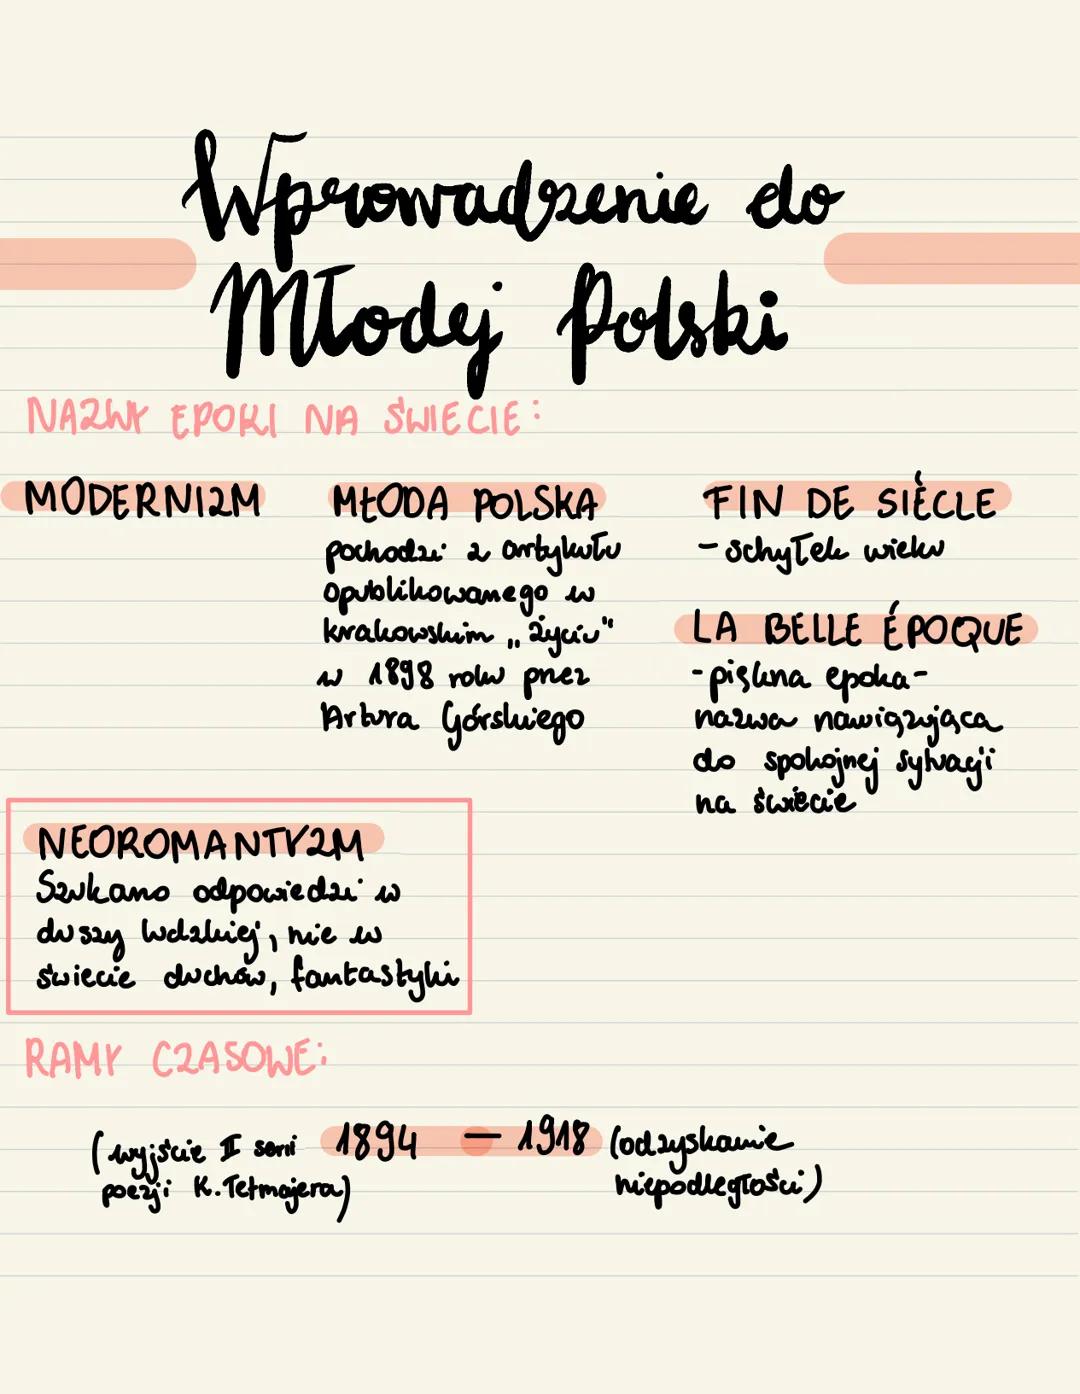 Wprowadzenie do
Młodej Polski
NAZWY EPOKI NA ŚWIECIE:
MODERNIZM
MŁODA POLSKA
pochodzi z artykułu
opublikowanego w
krakowskim „Życiu"
w 1898 roku przez
Artura Górskiego
FIN DE SIÈCLE
- schyłek wieku
LA BELLE ÉPOQUE
- piękna epoka -
nazwa nawiązująca
do spokojnej sytuacji
na świecie
NEOROMANTYZM
Szukano odpowiedzi w
duszy ludzkiej, nie w
świecie duchów, fantastyki
RAMY CZASOWE:
(wyjście II serii
poezji K. Tetmajera)
1894 — 1918
(odzyskanie
niepodległości)